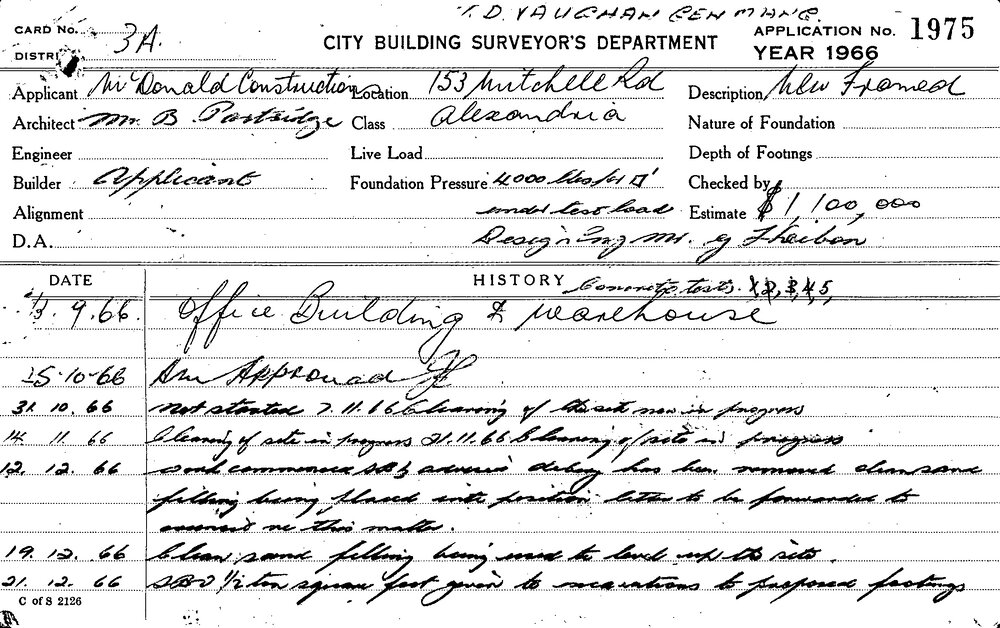 T. D. VAUGHAN GEN MANG.
CARD No. 3A. CITY BUILDING SURVEYOR'S DEPARTMENT APPLICATION No. 1975
DISTRI YEAR 1966
Applicant McDonald Constructions Location 153 Mitchell Rd Description New Framed
Architect Mr. B. Partridge Class Alexandria Nature of Foundation
Engineer Live Load Depth of Footings
Builder Applicant Foundation Pressure 4000 lbs/ Checked by
Alignment under test load Estimate $1,100,000
D.A. Designing Mr.
DATE HISTORY Concrete tests. 1, 2, 3, 4, 5,
13. 9. 66. Office Building & Warehouse
25-10-66 Approved
31. 10. 66 Not started 7.11.66 Clearing of the site now in progress
14. 11. 66 Clearing of site in progress 21.11.66 Clearing of site in progress
12. 12. 66 work commenced debris has been removed clean sand
filling being placed into position letter to be forwarded to
council re this matter.
19. 12. 66 Clean sand filling being used to level up the site.
21. 12. 66 ton square foot given to excavations to proposed footings
C of S 2126